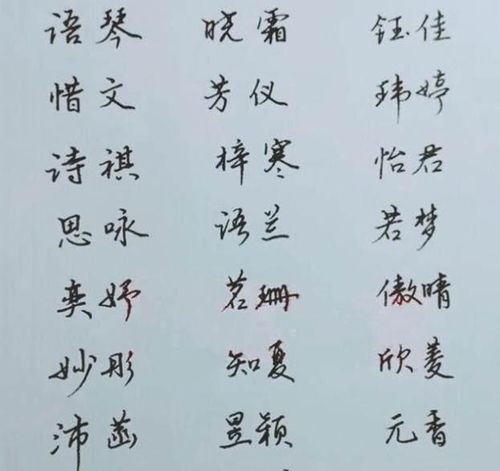 语琴 晓霜 钰佳
惜文 芳仪 玮婷
诗祺 梓寒 怡君
思咏 语兰 若梦
奕妤 茗珊 傲晴
妙彤 知夏 欣菱
沛菡 昱颖 元香